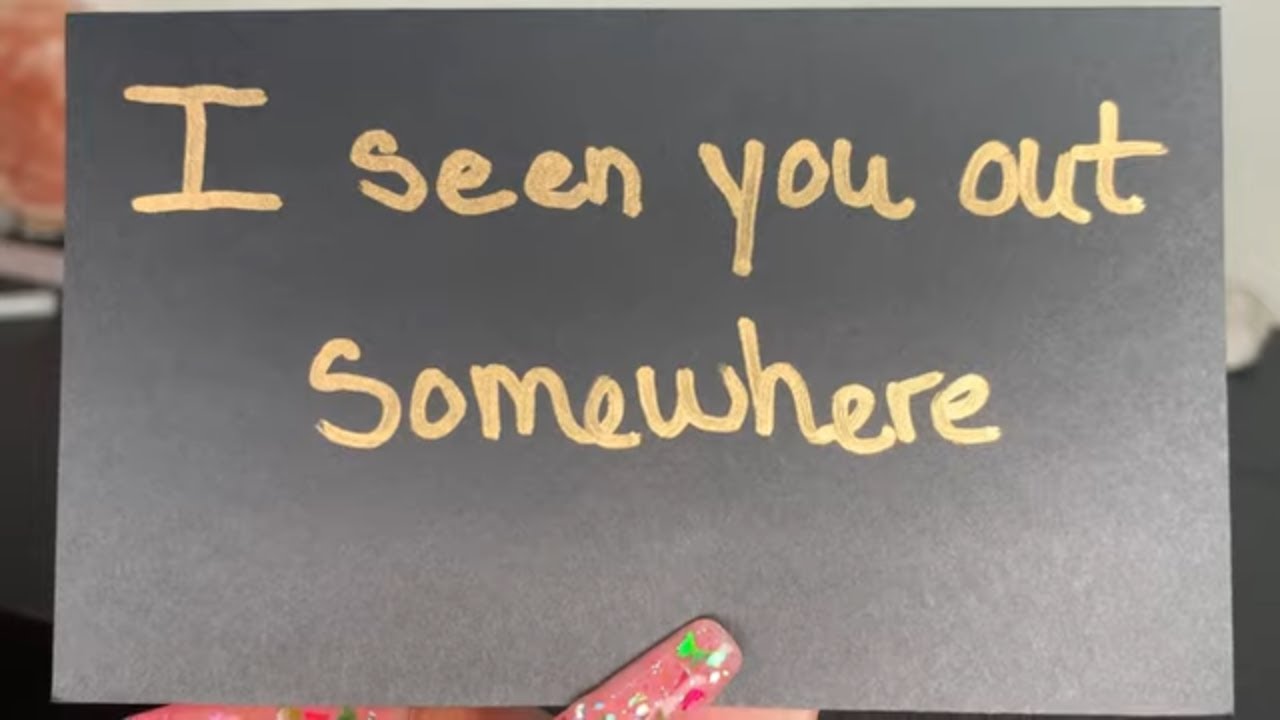 I seen you out
Somewhere